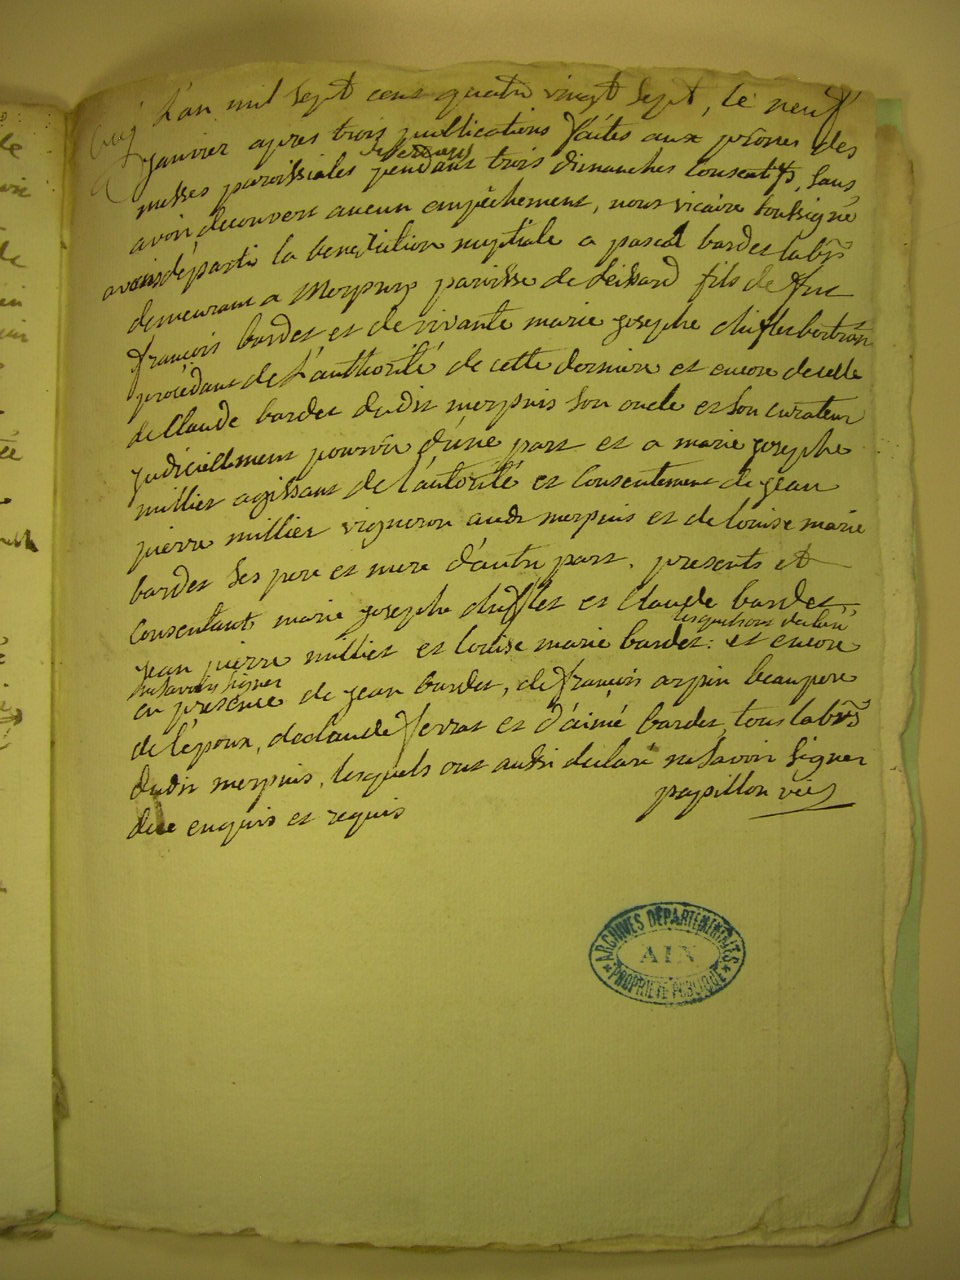 L'an mil sept cent quatre vingt sept, le neuf
janvier apres trois publications faites aux prones des
messes paroissiales pendant trois dimanches consecutifs, sans
avoir decouvert aucun empêchement, nous vicaire soussigné
avons départi la benediction nuptiale a pascal bardet labr
demeurant a Merpuis paroisse de Leissard fils de feu
françois bardet et de vivante marie josephe chifflet bertran
procédant de l'authorité de cette derniere et encore de celle
de Claude bardet dudit merpuis son oncle et son curateur
judiciellement pourvû d'une part et a marie josephe
millier agissant de l'autorité et consentement de jean
pierre millier vigneron audt merpuis et de louise marie
bardet ses pere et mere d'autre part. presents et
consentants marie josephe chifflet et Claude bardet
lesquels ont declaré
jean pierre millier et louise marie bardet: et encore
ne savoir signer
en presence de jean bardet, de françois arpin beaupere
de l'époux, de claude ferrat et d'aimé bardet, tous labrs
dudit merpuis, lesquels ont aussi declaré ne savoir signer
de ce enquis et requis
papillon vic
ARCHIVES DÉPARTEMENTALES
AIN
PROPRIÉTÉ PUBLIQUE